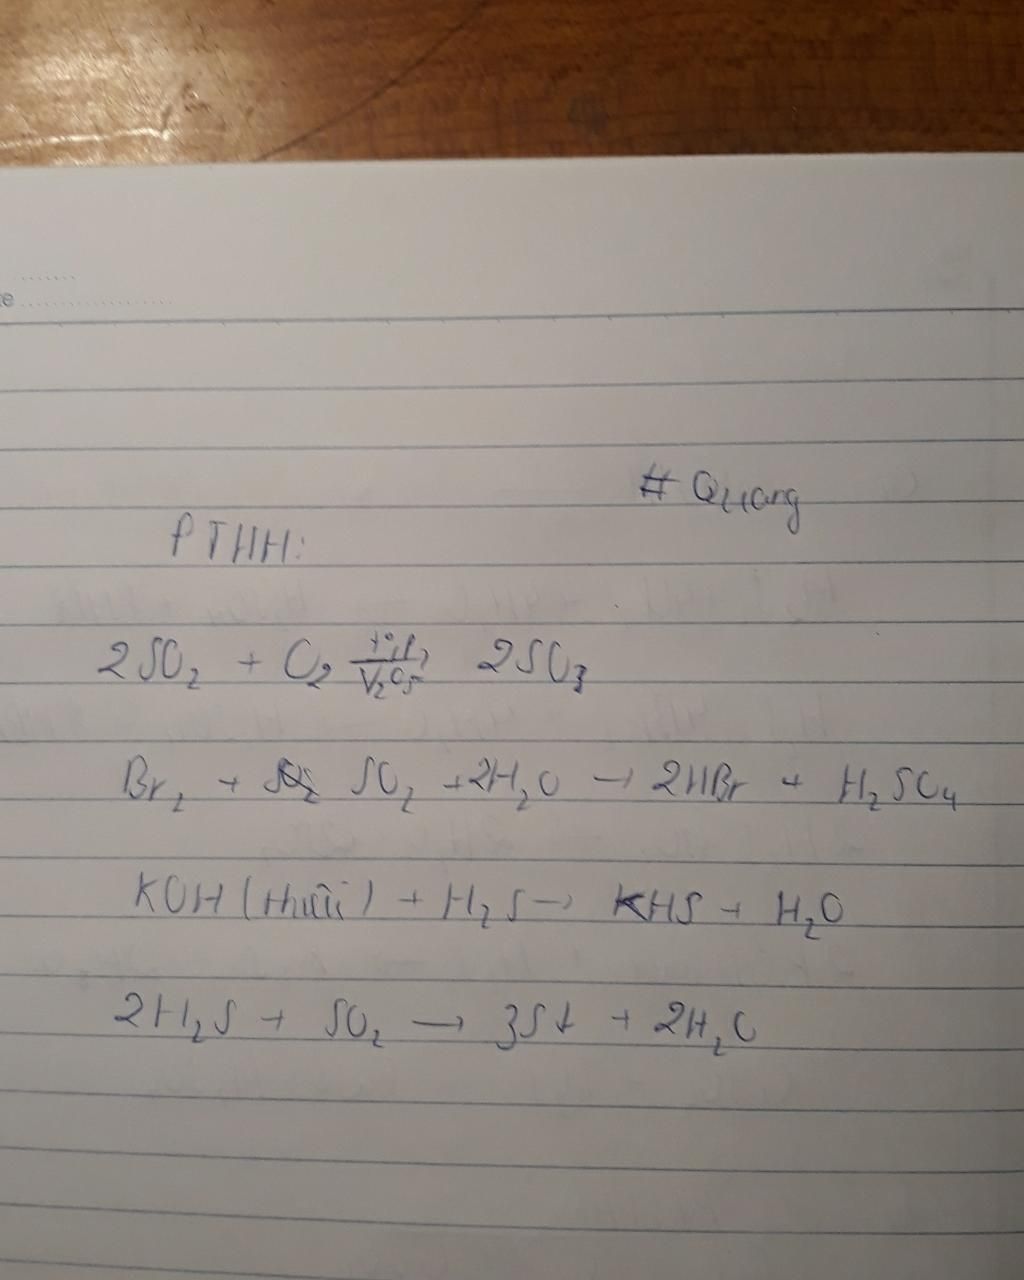 te ..................
# Quang
PTHH:
2SO₂ + O₂ t°, p, V₂O₅ 2SO₃
Br₂ + SO₂ + 2H₂O → 2HBr + H₂SO₄
KOH (thiếu) + H₂S → KHS + H₂O
2H₂S + SO₂ → 3S↓ + 2H₂O